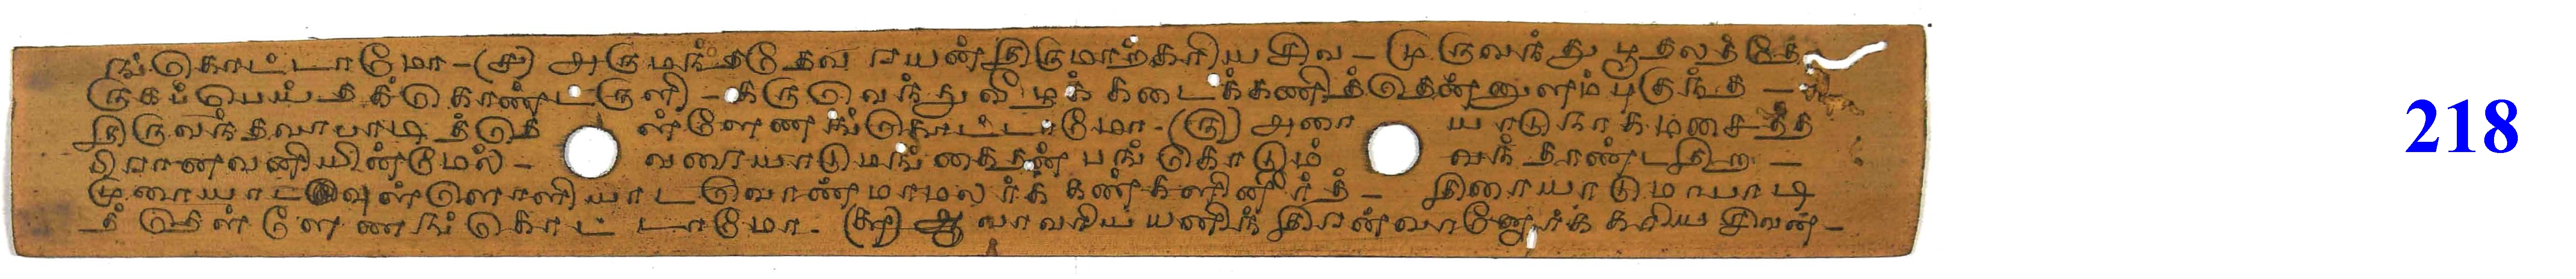 ங்கொட்டாமோ - (ச) அருமந்ததேவ ரயன்திருமாற்கரிய சிவ - முருவந்து பூதலத்தோ
ருகப்பெய்தக்கொண்டருளி - கருவெந்து வீழக் கடைக்கணித்தென்னுளம் புகுந்த -
திருவந்தவாபாடித்தெ ள்ளேணங்கொட்டாமோ - (ரு) அரை யாடுநாகமசைத்த
பிரானவனியின்மேல் - வரையாடுமங்கைதன் பங்கொடும் வந்தாண்டதிற -
முரையாடவுள்ளொளியாடவொண்மாமலர்க் கண்களினீர்த் - திரையாடுமாபாடி
த் தெள்ளேணங்கொட் டாமோ - (சு) ஆ வாவரிய யனிந் திரன்வானோர்க் கரிய சிவன் -
218